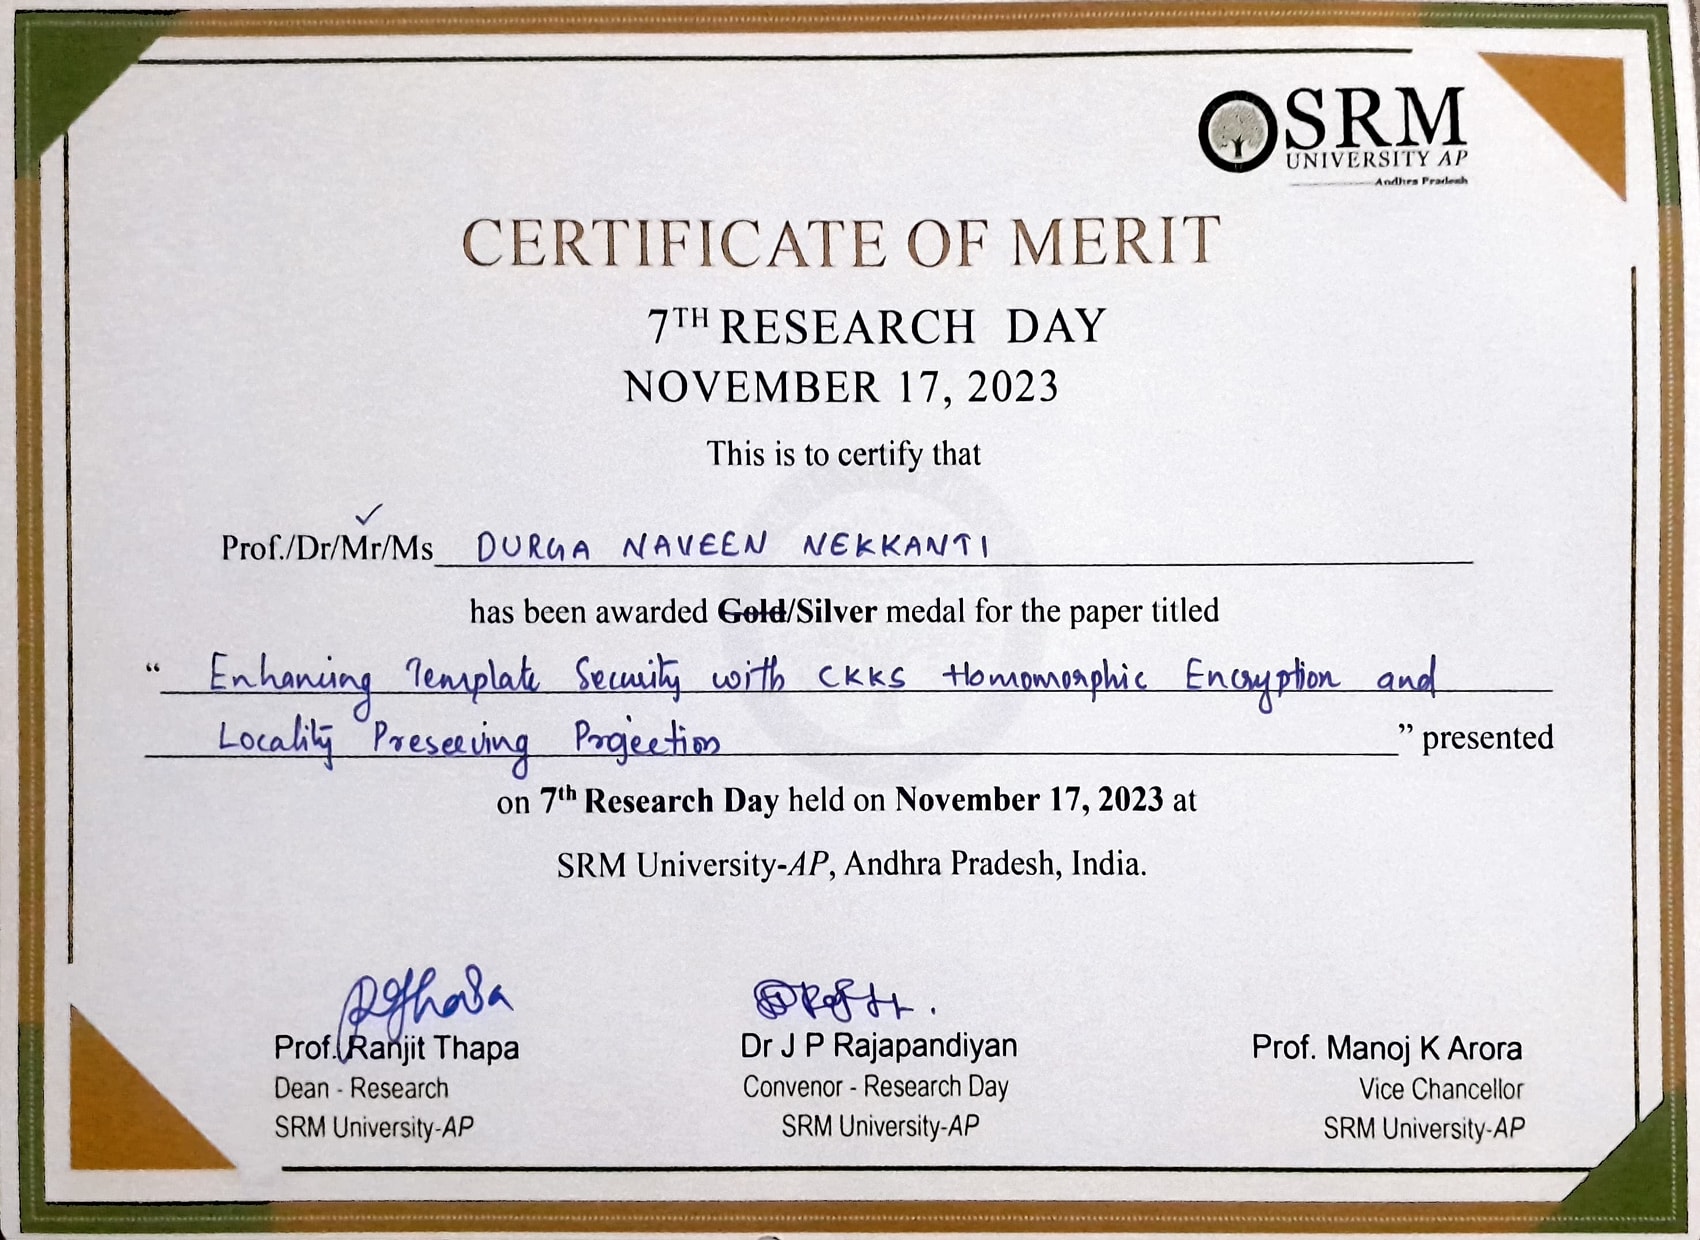 SRM
UNIVERSITY AP
Andhra Pradesh
CERTIFICATE OF MERIT
7TH RESEARCH DAY
NOVEMBER 17, 2023
This is to certify that
Prof./Dr/Mr/Ms DURGA NAVEEN NEKKANTI
has been awarded Gold/Silver medal for the paper titled
“ Enhancing Template Security with CKKS Homomorphic Encryption and
Locality Preserving Projection ” presented
on 7th Research Day held on November 17, 2023 at
SRM University-AP, Andhra Pradesh, India.
Prof. Ranjit Thapa
Dean - Research
SRM University-AP
Dr J P Rajapandiyan
Convenor - Research Day
SRM University-AP
Prof. Manoj K Arora
Vice Chancellor
SRM University-AP